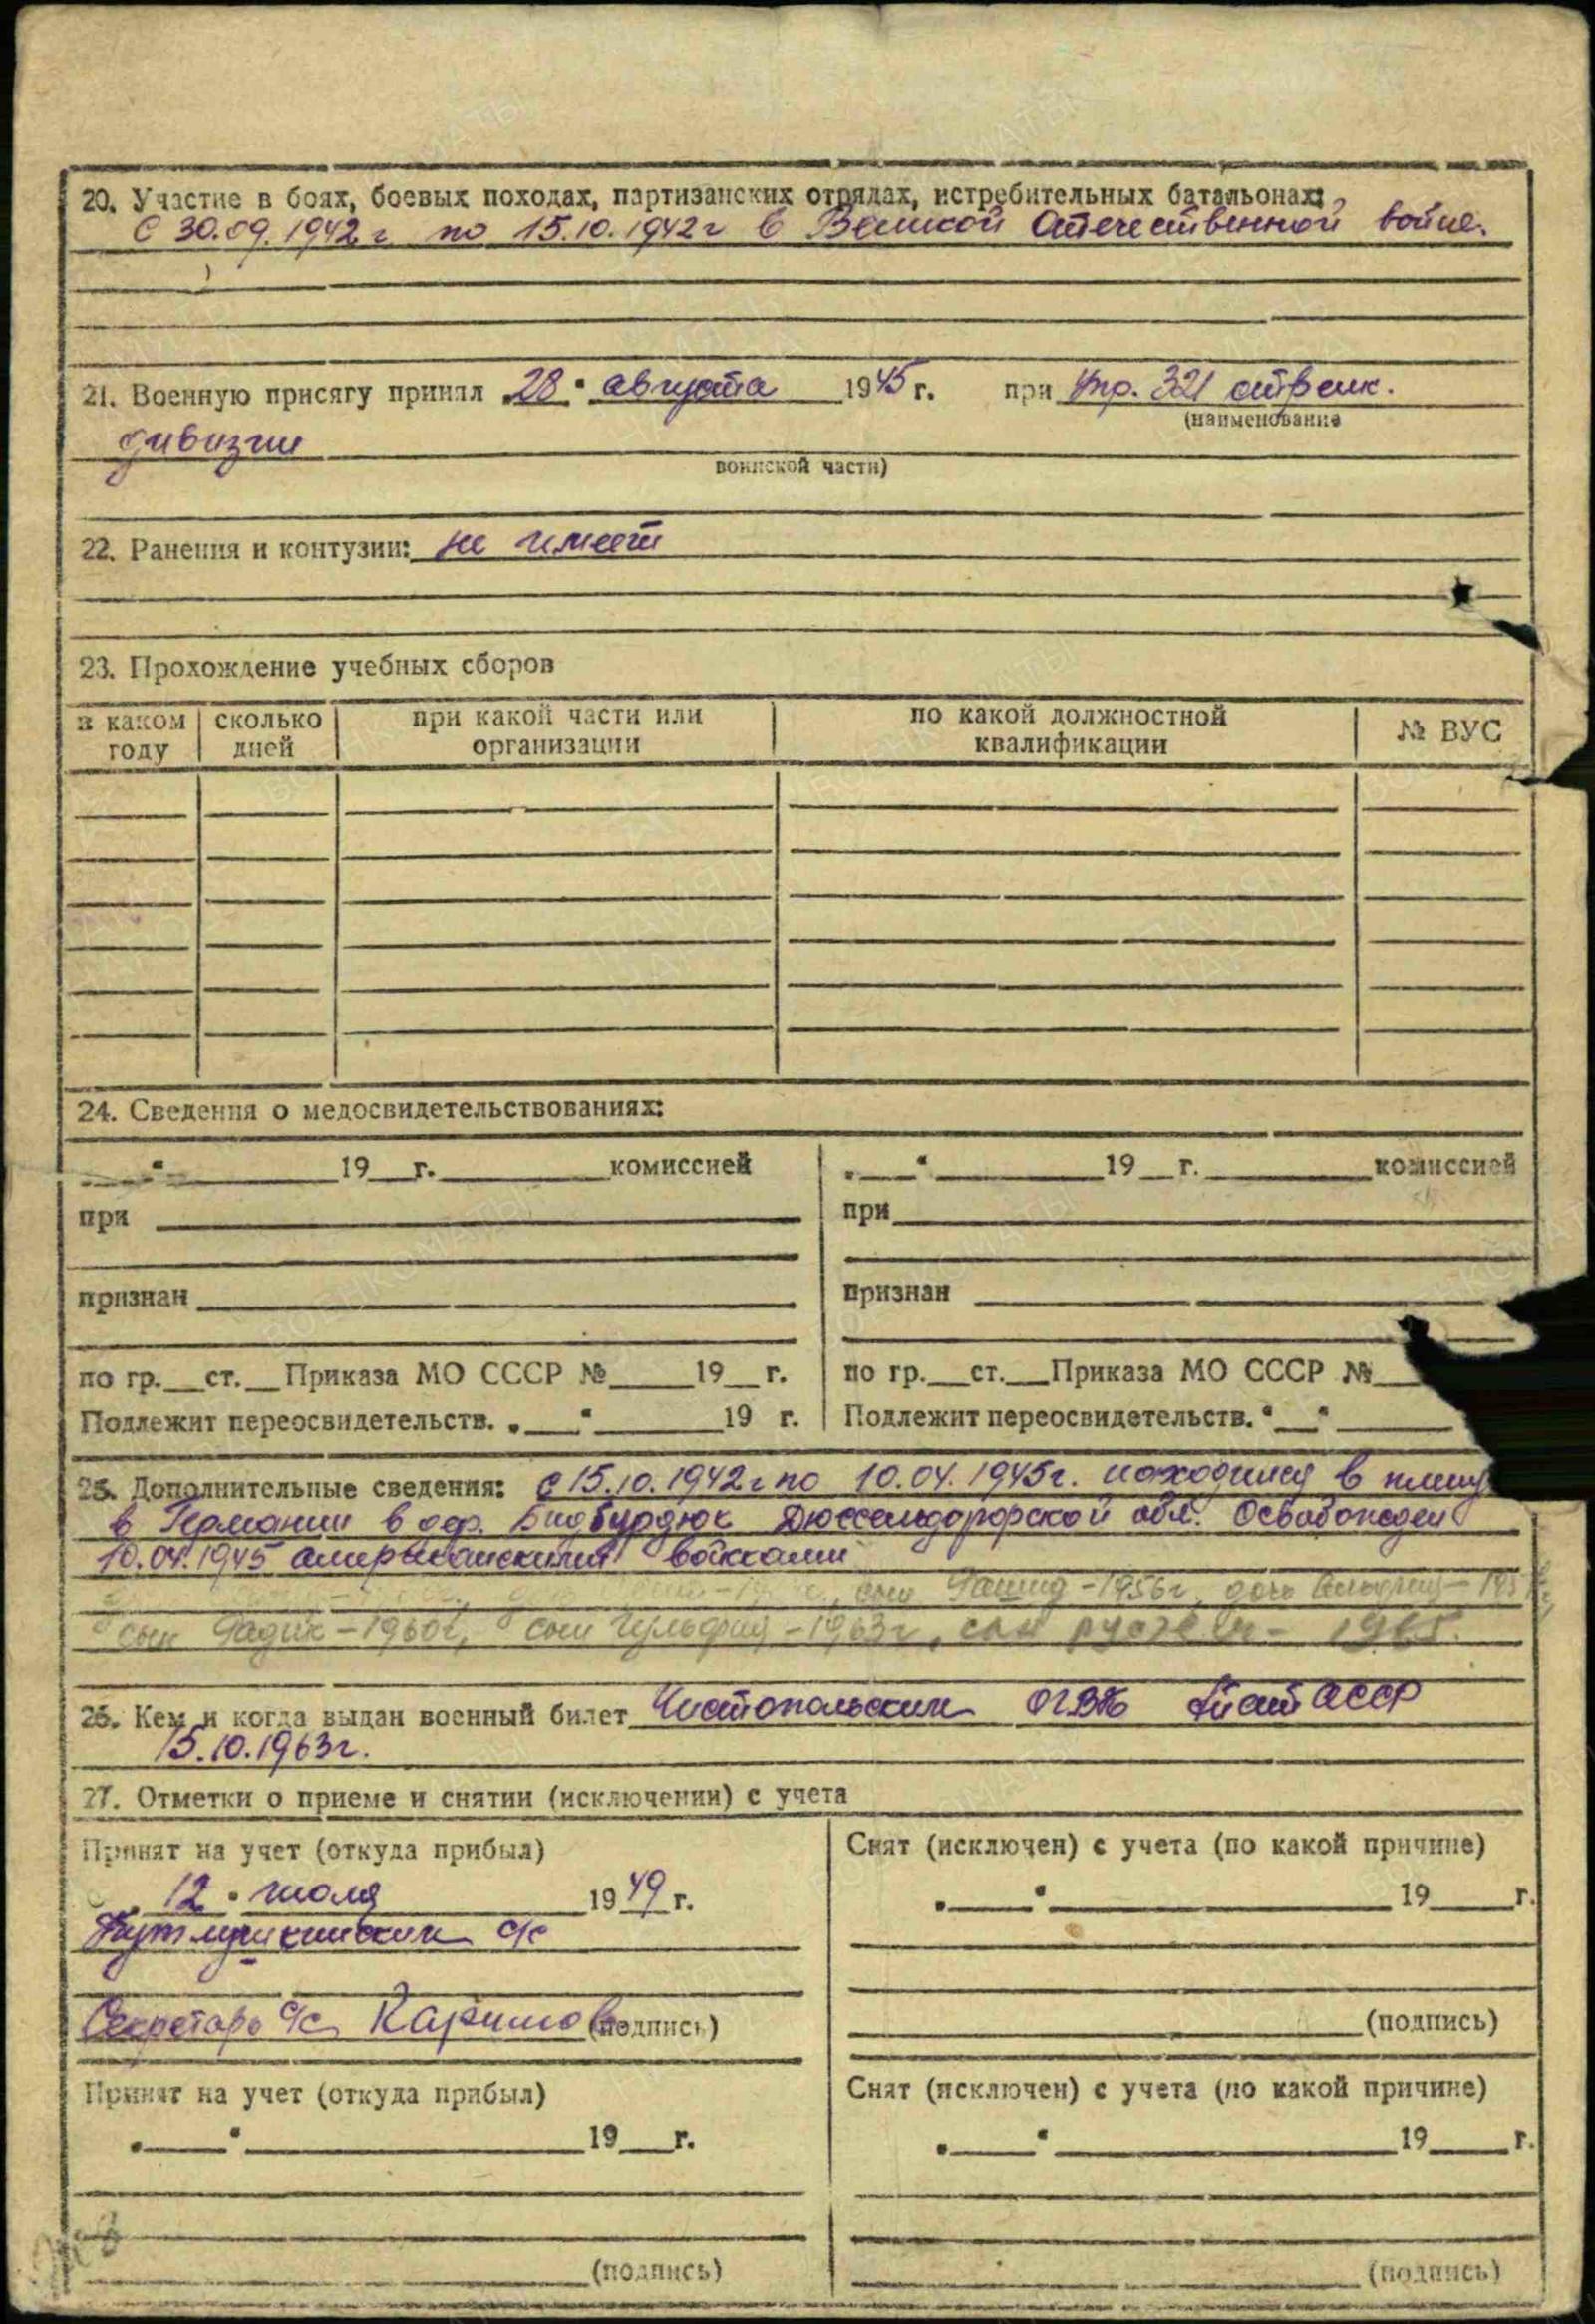 20. Участие в боях, боевых походах, партизанских отрядах, истребительных батальонах:
С 30.09.1942 г по 15.10.1942 г в Великой Отечественной войне.
21. Военную присягу принял „28" августа 1945 г. при упр. 321 стрелк.
(наименование
дивизии
воинской части)
22. Ранения и контузии: не имеет
23. Прохождение учебных сборов
в каком году сколько дней при какой части или организации по какой должностной квалификации № ВУС
24. Сведения о медосвидетельствованиях:
„__"______19__г.______комиссией „__"______19__г.______комиссией
при при
признан признан
по гр.__ст.__Приказа МО СССР №____19__г. по гр.__ст.__Приказа МО СССР №__
Подлежит переосвидетельств. „__"______19 г. Подлежит переосвидетельств. "__"______
25. Дополнительные сведения: с 15.10.1942 г по 10.04.1945 г. находился в плену
в Германии в Дюссельдорфской обл. Освобожден
10.04.1945 американскими войсками
сын Рашид - 1956 г, дочь
сын Радик - 1960 г, сын - 1963 г, сын - 1965.
26. Кем и когда выдан военный билет Чистопольским ОГВК ТатАССР
15.10.1963 г.
27. Отметки о приеме и снятии (исключении) с учета
Принят на учет (откуда прибыл) Снят (исключен) с учета (по какой причине)
„12" июля 1949 г. „__"______19__г.
с/с
Секретарь с/с Каримов (подпись) (подпись)
Принят на учет (откуда прибыл) Снят (исключен) с учета (по какой причине)
„__"______19__г. „__"______19__г.
(подпись) (подпись)